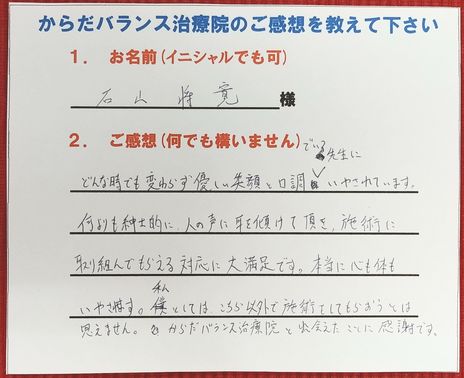 からだバランス治療院のご感想を教えて下さい
1. お名前(イニシャルでも可)
石山 将寛 様
2. ご感想(何でも構いません)
どんな時でも変わらず優しい笑顔と口調でいる先生にいやされています。
何よりも紳士的に、人の声に耳を傾けて頂き、施術に
取り組んでもらえる対応に大満足です。本当に心も体も
いやされます。私としては、こちら以外で施術をしてもらおうとは
思えません。からだバランス治療院と出会えたことに感謝です。